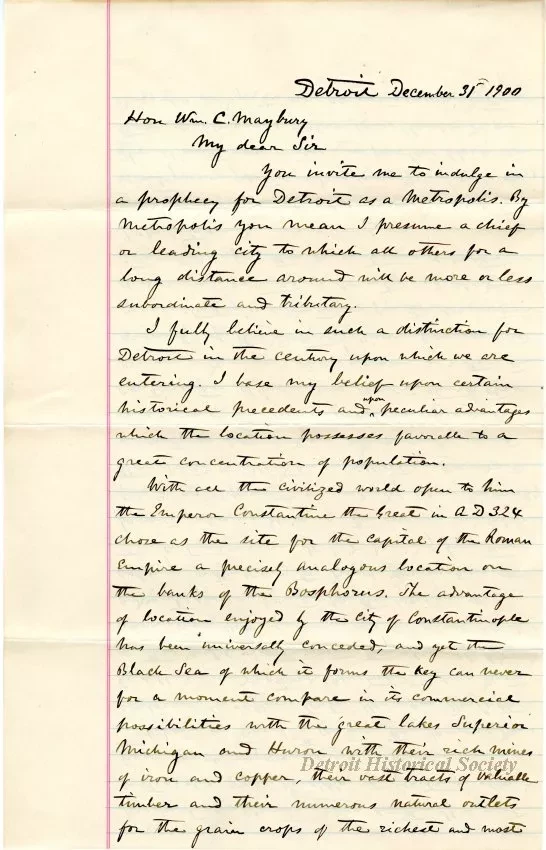 Detroit December 31st 1900
Hon Wm. C. Maybury
My dear Sir
You invite me to indulge in
a prophecy for Detroit as a Metropolis. By
Metropolis you mean I presume a chief
or leading city to which all others for a
long distance around will be more or less
subordinate and tributary.
I fully believe in such a distinction for
Detroit in the century upon which we are
entering. I base my belief upon certain
historical precedents and upon peculiar advantages
which the location possesses favorable to a
great concentration of population.
With all the civilized world open to him
the Emperor Constantine the Great in AD 324
chose as the site for the capital of the Roman
Empire a precisely analogous location on
the banks of the Bosphorus. The advantage
of location enjoyed by the City of Constantinople
has been universally conceded, and yet the
Black Sea of which it forms the key can never
for a moment compare in its commercial
possibilities with the great lakes Superior
Michigan and Huron with their rich mines
Detroit Historical Society
of iron and copper, their vast tracts of valuable
timber and their numerous natural outlets
for the grain crops of the richest and most